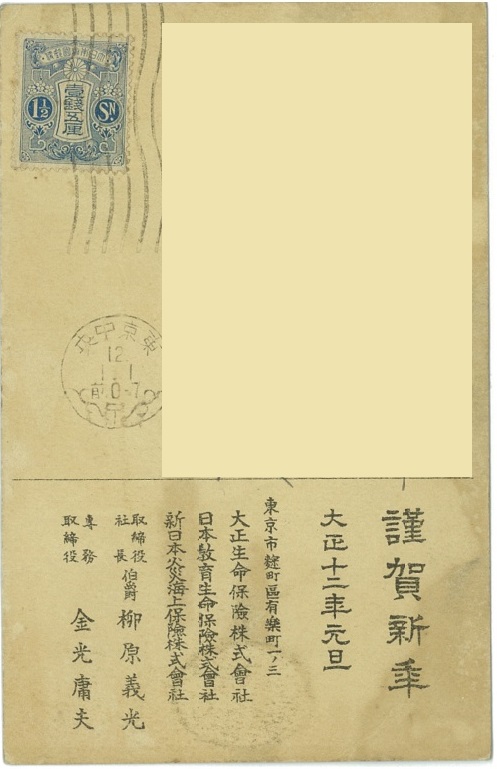 大日本帝國郵便
壹錢五厘
1½
Sn
東京中央
12
1.1
前0-7
謹賀新年
大正十二年元旦
東京市麹町區有樂町一ノ三
大正生命保險株式會社
日本教育生命保險株式會社
新日本火災海上保險株式會社
取締役社長 伯爵 柳原義光
專務取締役 金光庸夫